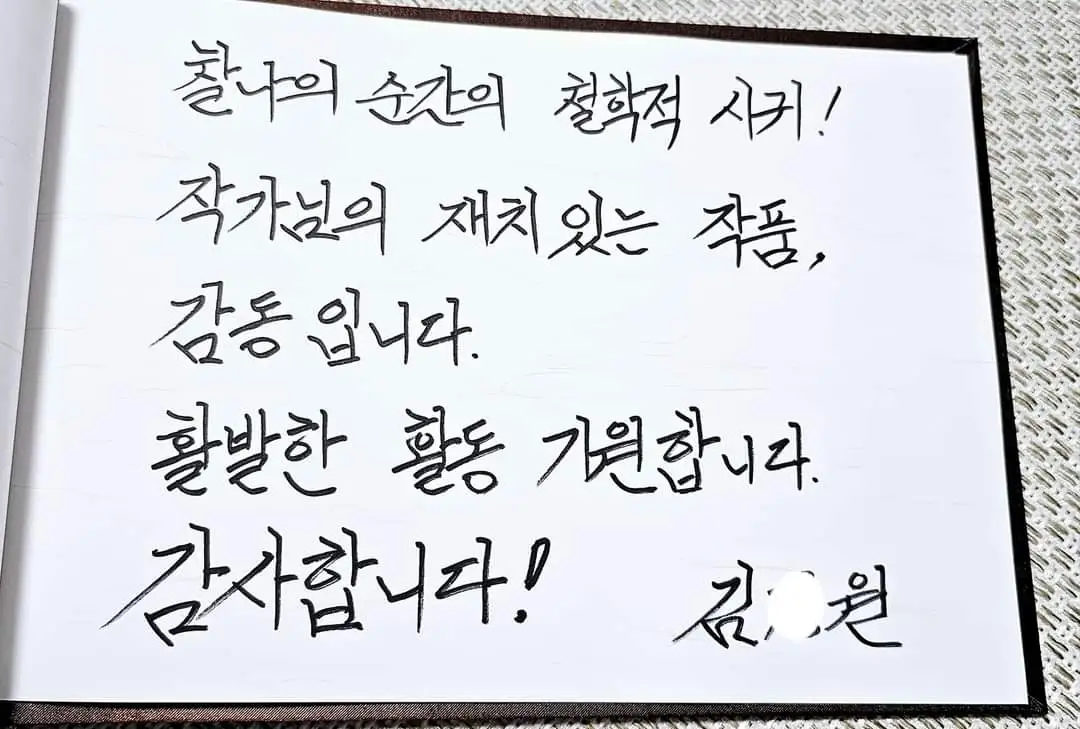 찰나의 순간의 철학적 사귀!
작가님의 재치있는 작품,
감동입니다.
활발한 활동 기원합니다.
감사합니다! 김 원